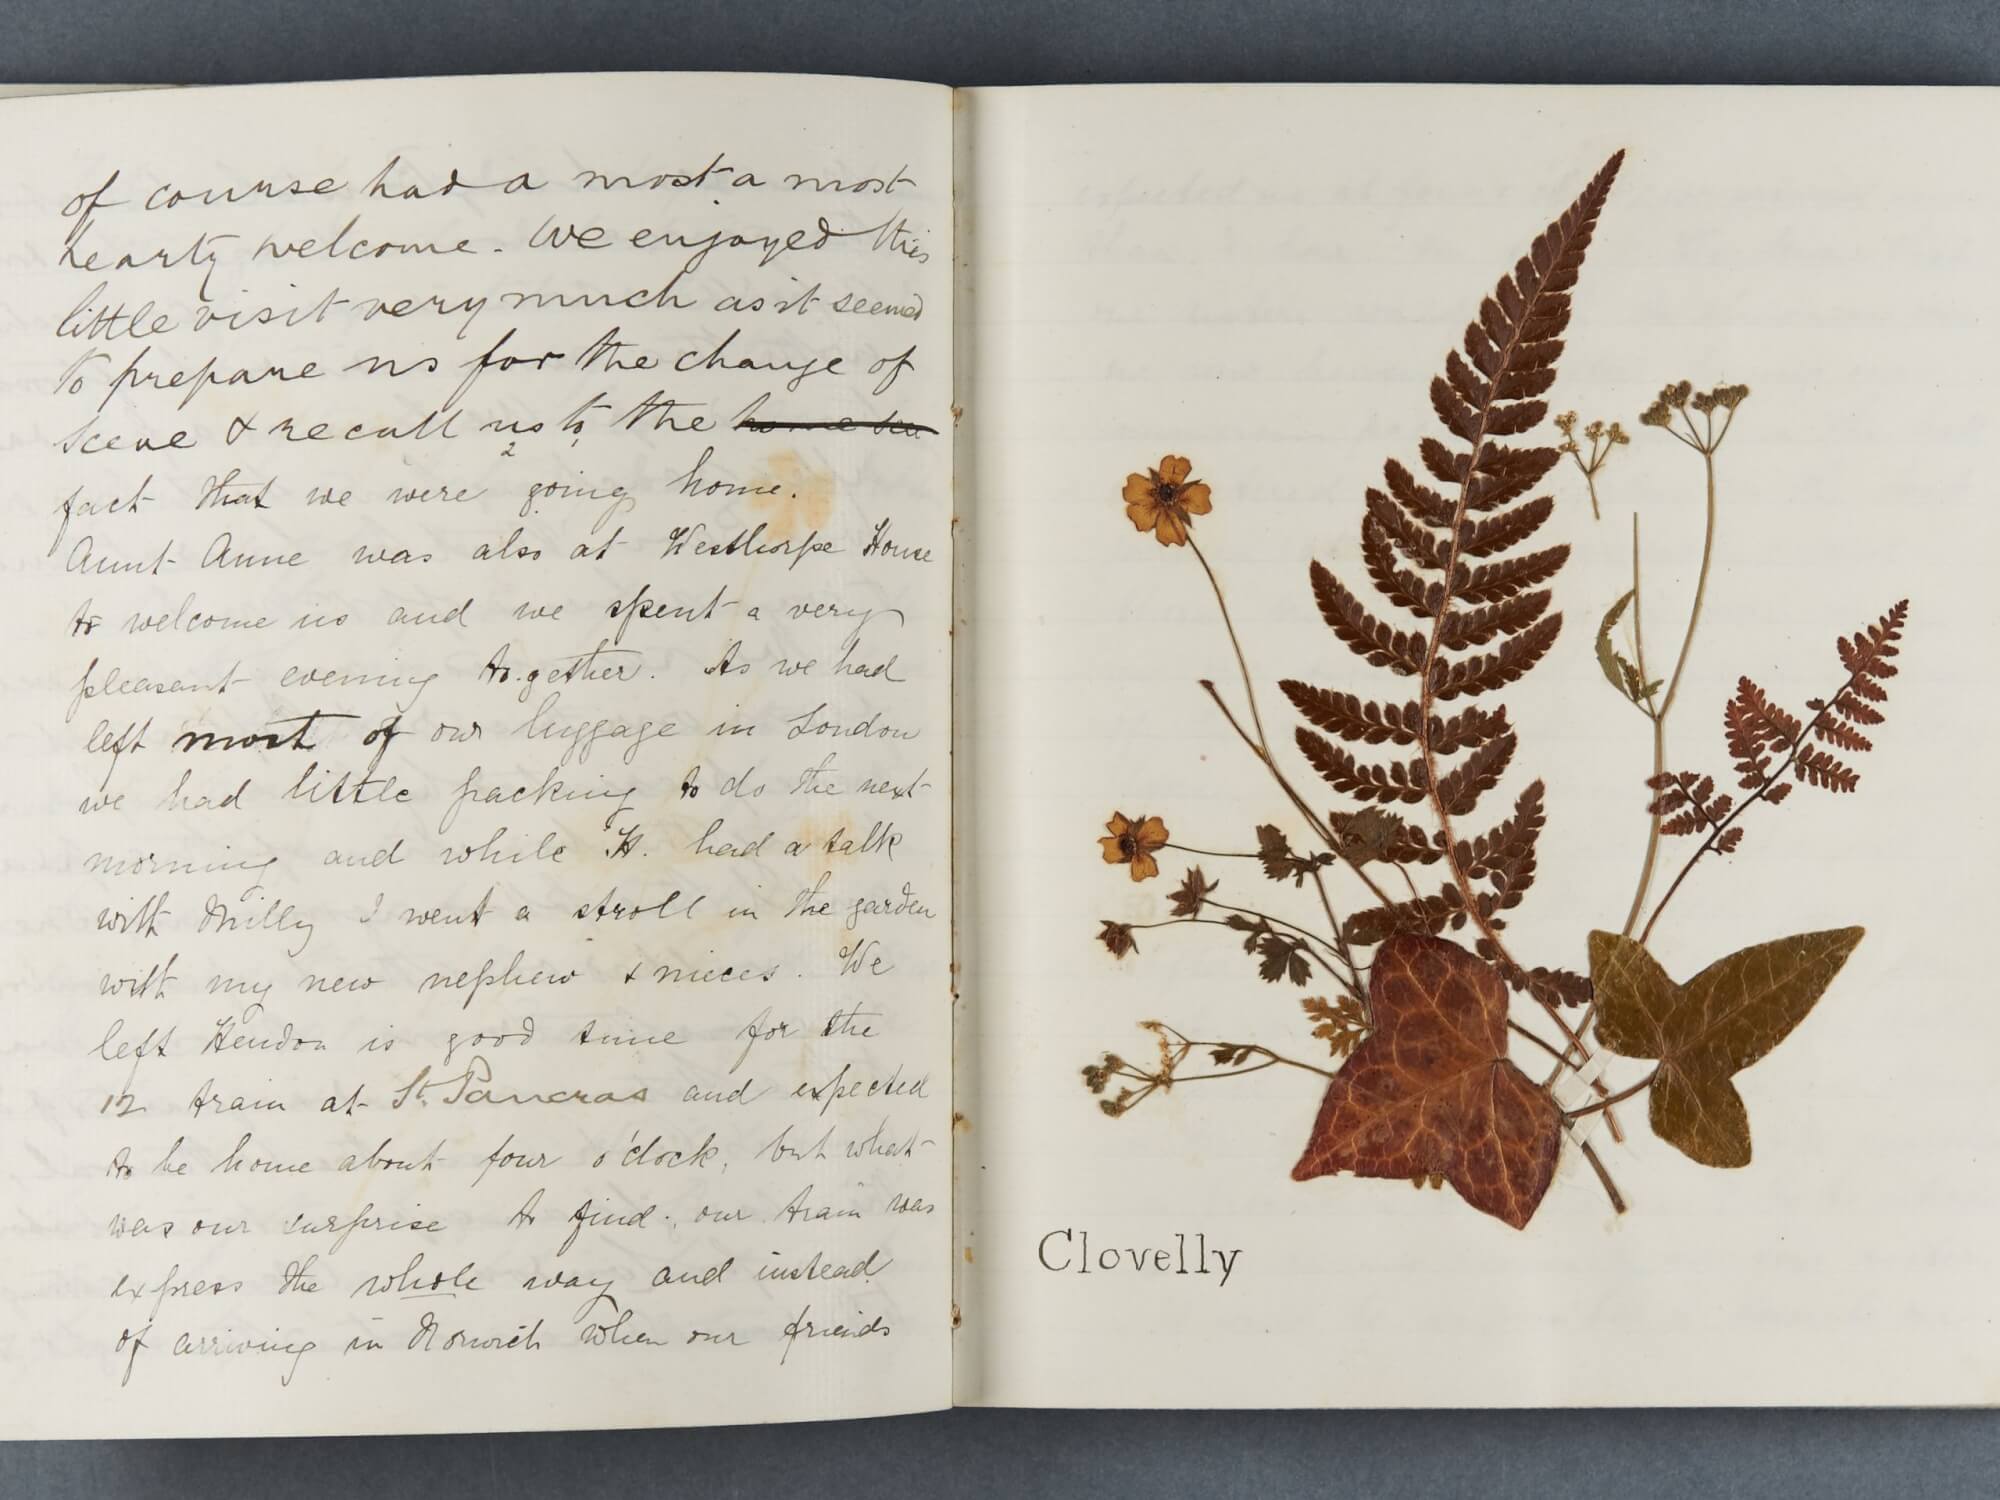 of course had a most a most
hearty welcome. We enjoyed this
little visit very much as it seemed
to prepare us for the change of
scene & recall us to the home sce
2
fact that we were going home.
Aunt Anne was also at Westhorpe House
to welcome us and we spent a very
pleasant evening together. As we had
left most of our luggage in London
we had little packing to do the next
morning and while H. had a talk
with Milly I went a stroll in the garden
with my new nephew & nieces. We
left Hendon is good time for the
12 train at St. Pancras and expected
to be home about four o'clock, but what
was our surprise to find our train was
express the whole way and instead
of arriving in Norwich when our friends
Clovelly